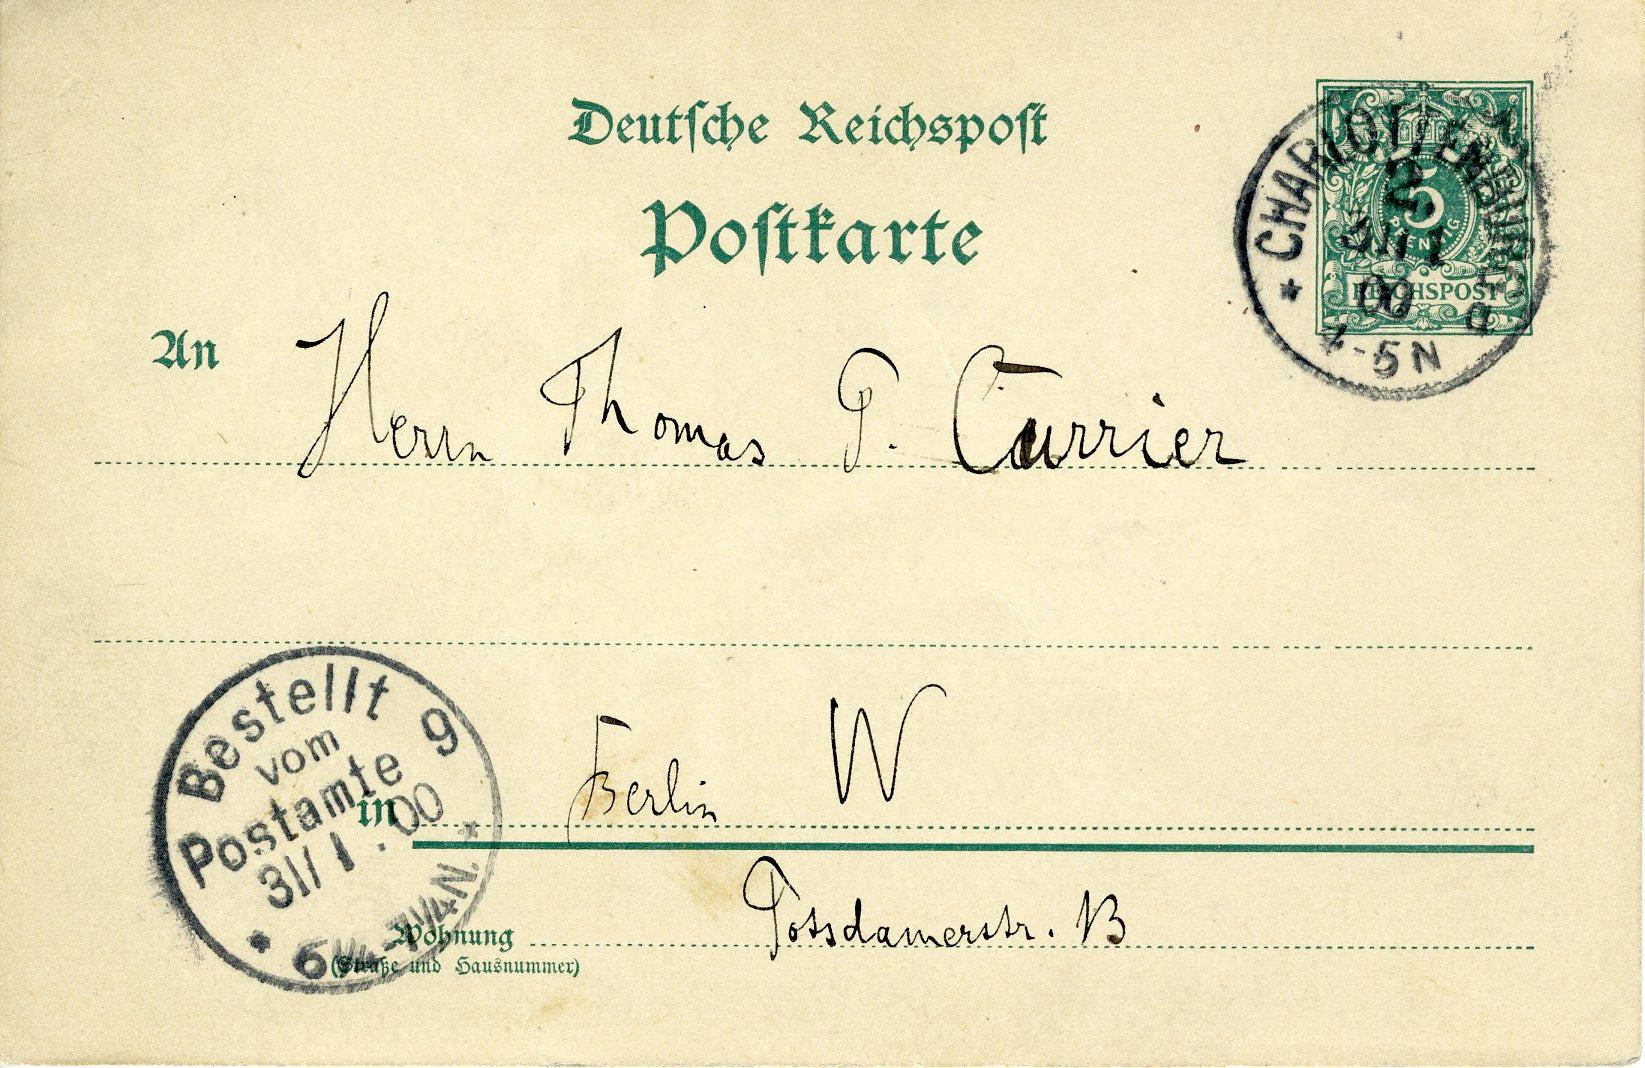 Deutsche Reichspost
Postkarte
CHARLOTTENBURG
2
d
31/1
00
4-5N
5
PFENNIG
REICHSPOST
An
Herrn Thomas P. Currier
Bestellt
vom
Postamte 9
31/1.00
6¼-7¼N.
in
Berlin W
Wohnung
(Straße und Hausnummer)
Potsdamerstr. 13